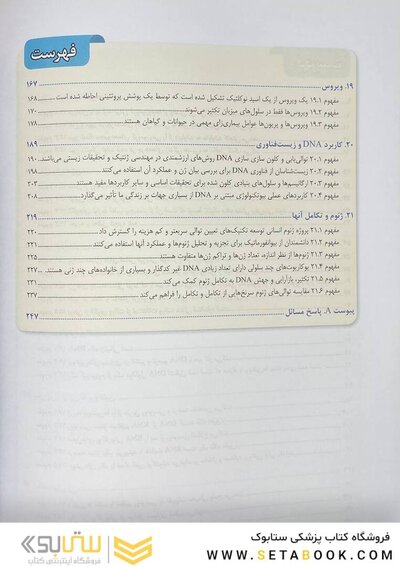 فهرست
۱۹. ویروس ۱۶۷
مفهوم ۱۹.۱ یک ویروس از یک اسید نوکلئیک تشکیل شده است که توسط یک پوشش پروتئینی احاطه شده است ۱۶۸
مفهوم ۱۹.۲ ویروس‌ها فقط در سلول‌های میزبان تکثیر می‌شوند ۱۷۰
مفهوم ۱۹.۳ ویروس‌ها و پریون‌ها عوامل بیماری‌زای مهمی در حیوانات و گیاهان هستند ۱۷۸
۲۰. کاربرد DNA و زیست‌فناوری ۱۸۹
مفهوم ۲۰.۱ توالی‌یابی و کلون سازی سازی DNA روش‌های ارزشمندی در مهندسی ژنتیک و تحقیقات زیستی می‌باشند ۱۹۰
مفهوم ۲۰.۲ زیست‌شناسان از فناوری DNA برای بررسی بیان ژن و عملکرد آن استفاده می‌کنند ۱۹۸
مفهوم ۲۰.۳ ارگانیسم‌ها و سلول‌های بنیادی کلون شده برای تحقیقات اساسی و سایر کاربردها مفید هستند ۲۰۳
مفهوم ۲۰.۴ کاربردهای عملی بیوتکنولوژی مبتنی بر DNA از بسیاری جهات بر زندگی ما تأثیر می‌گذارد ۲۰۸
۲۱. ژنوم و تکامل آنها ۲۱۹
مفهوم ۲۱.۱ پروژه ژنوم انسانی توسعه تکنیک‌های تعیین توالی سریعتر و کم هزینه را گسترش داد ۲۲۰
مفهوم ۲۱.۲ دانشمندان از بیوانفورماتیک برای تجزیه و تحلیل ژنوم‌ها و عملکرد آنها استفاده می‌کنند ۲۲۲
مفهوم ۲۱.۳ ژنوم‌ها از نظر اندازه، تعداد ژن‌ها و تراکم ژن‌ها متفاوت هستند ۲۲۵
مفهوم ۲۱.۴ یوکاریوت‌های چند سلولی دارای تعداد زیادی DNA غیر کدگذار و بسیاری از خانواده‌های چند ژنی هستند ۲۲۷
مفهوم ۲۱.۵ تکثیر، بازآرایی و جهش DNA به تکامل ژنوم کمک می‌کند ۲۳۱
مفهوم ۲۱.۶ مقایسه توالی‌های ژنوم سرنخ‌هایی از تکامل و تکامل را فراهم می‌کند ۲۳۷
پیوست A. پاسخ مسائل ۲۴۷
فروشگاه کتاب پزشکی ستابوک
WWW.SETABOOK.COM
ستابوک
فروشگاه اینترنتی کتاب